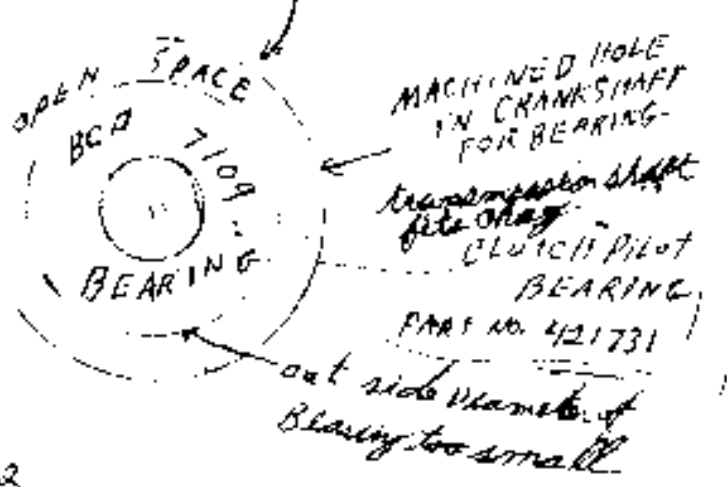 OPEN SPACE
BCA
7109
BEARING
MACHINED HOLE
IN CRANKSHAFT
FOR BEARING
transmission shaft
fits okay
CLUTCH PILOT
BEARING
PART NO. 421731
out side Diameter of
Bearing too small
2